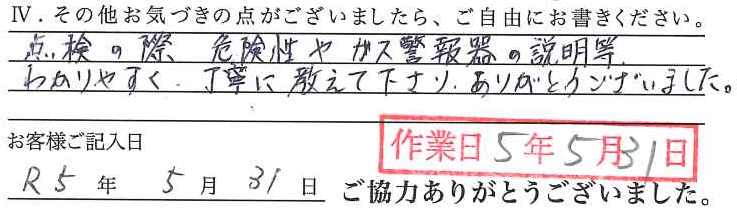 Ⅳ.その他お気づきの点がございましたら、ご自由にお書きください。
点検の際 危険性やガス警報器の説明等、
わかりやすく、丁寧に教えて下さり、ありがとうございました。
お客様ご記入日
作業日5年5月31日
R5年 5月 31日 ご協力ありがとうございました。